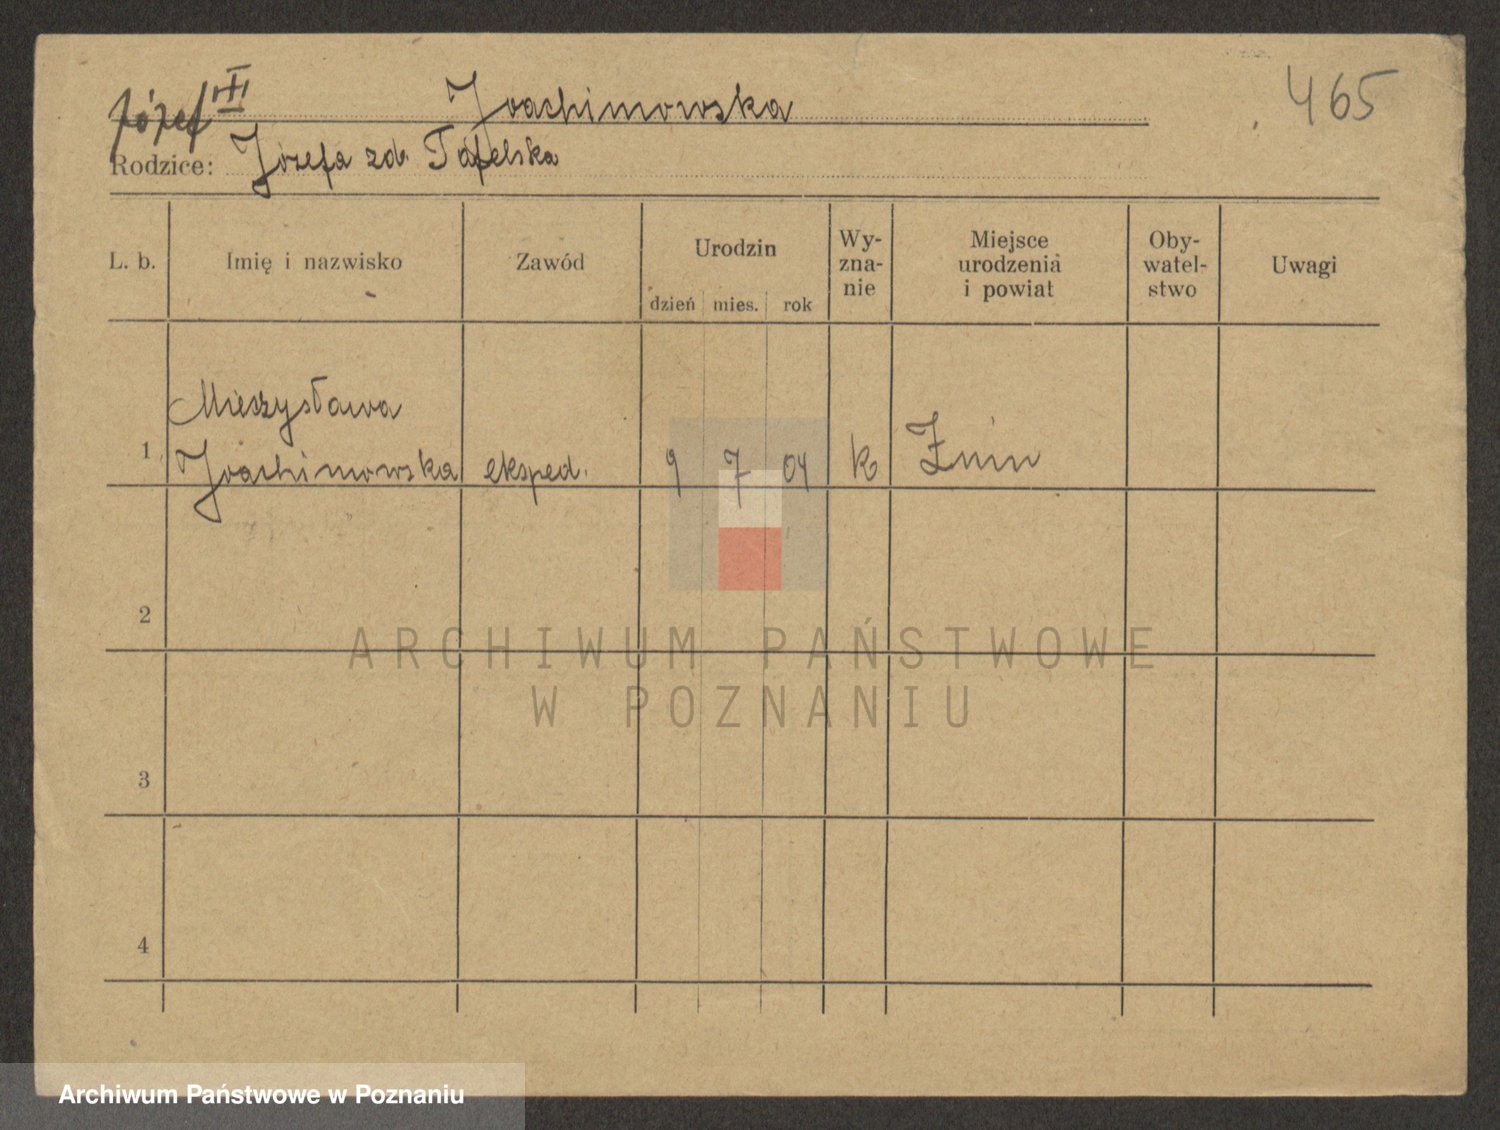 Józef III Joachimowska 465
Rodzice: Józefa zd. Tafelska
L. b. Imię i nazwisko Zawód Urodzin dzień mies. rok Wy-
zna-
nie Miejsce
urodzenia
i powiat Oby-
watel-
stwo Uwagi
Mieczysława
1 Joachimowska eksped. 9 7 04 k Żnin
2
ARCHIWUM PAŃSTWOWE
W POZNANIU
3
4
Archiwum Państwowe w Poznaniu